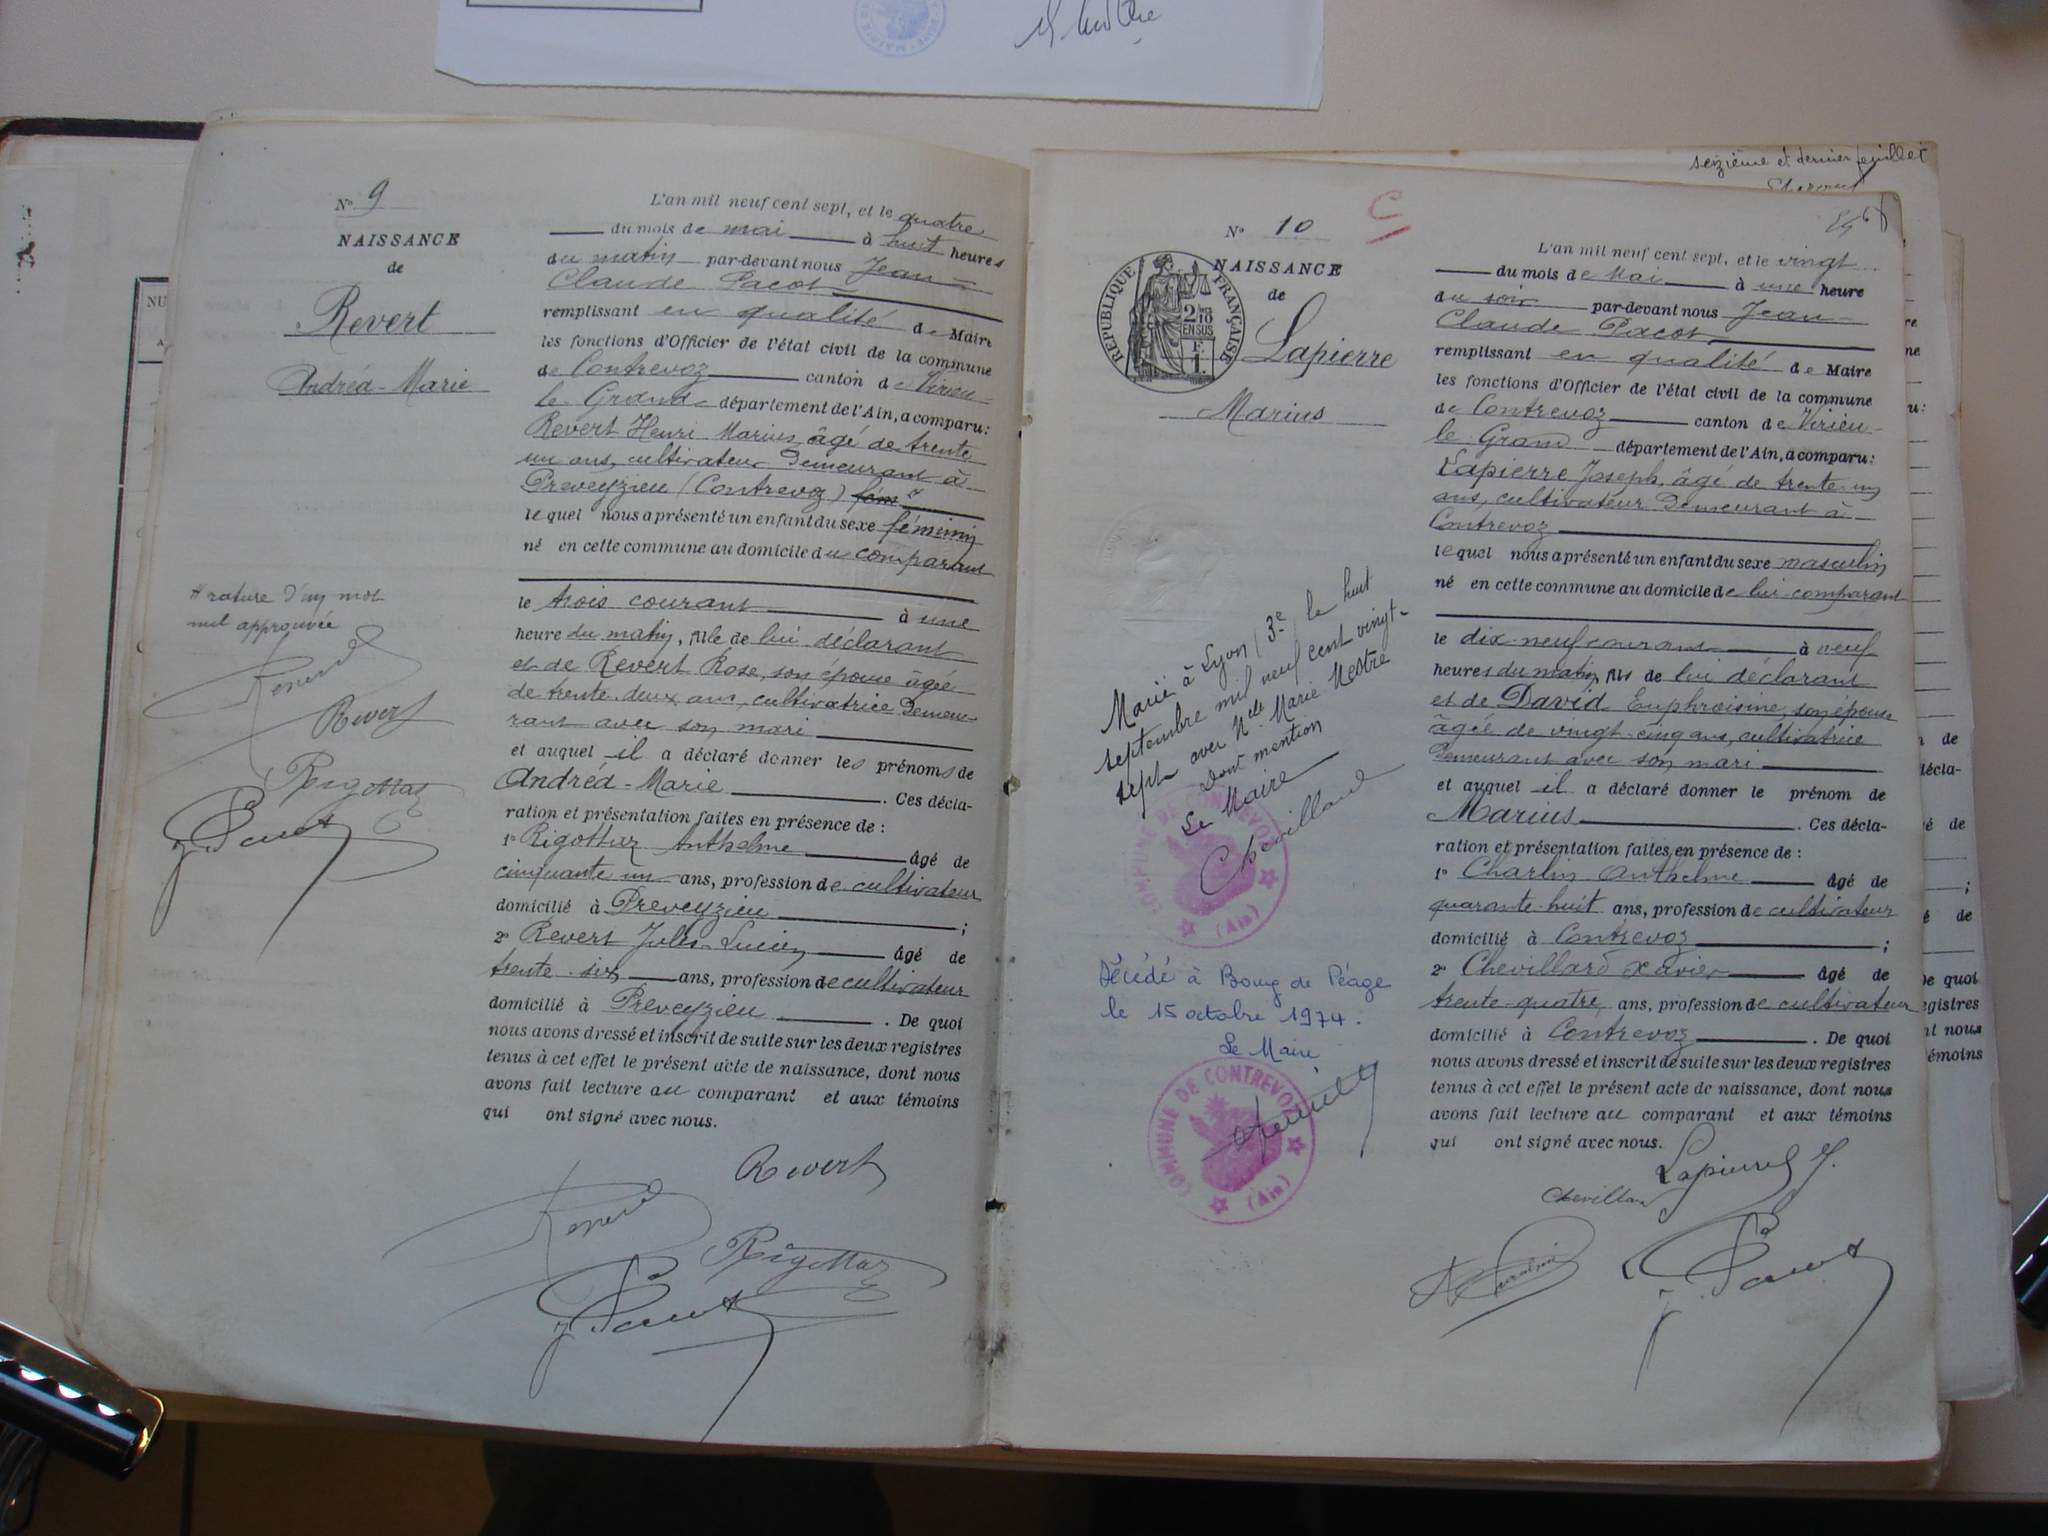 Nº 9
NAISSANCE
de
Revert
Andréa-Marie
L'an mil neuf cent sept, et le quatre
du mois de mai à huit heures
du matin par-devant nous Jean
Claude Pacot
remplissant en qualité de Maire
les fonctions d'Officier de l'état civil de la commune
de Contrevoz canton de Virieu
le Grand département de l'Ain, a comparu:
Revert Henri Marius, âgé de trente
un ans, cultivateur Demeurant à
Preveyzieu (Contrevoz) fém
lequel nous a présenté un enfant du sexe féminin
né en cette commune au domicile du comparant
le trois courant à une
heure du matin, fille de lui déclarant
et de Revert Rose, son épouse âgée
de trente-deux ans, cultivatrice Demeu-
rant avec son mari
et auquel il a déclaré donner les prénoms de
Andréa-Marie. Ces décla-
ration et présentation faites en présence de :
1º Rigottaz Anthelme âgé de
cinquante un ans, profession de cultivateur
domicilié à Preveyzieu ;
2º Revert Jules-Lucien âgé de
trente-six ans, profession de cultivateur
domicilié à Preveyzieu. De quoi
nous avons dressé et inscrit de suite sur les deux registres
tenus à cet effet le présent acte de naissance, dont nous
avons fait lecture au comparant et aux témoins
qui ont signé avec nous.
Revert
Revert
Rigottaz
J. Pacot
rature d'un mot
nul approuvée
Revert
Revert
Rigottaz
J. Pacot
seizième et dernier feuillet
Nº 10
C
NAISSANCE
de
RÉPUBLIQUE FRANÇAISE
2/10 EN SUS
F.
1.
Lapierre
Marius
L'an mil neuf cent sept, et le vingt
du mois de Mai à une heure
du soir par-devant nous Jean-
Claude Pacot
remplissant en qualité de Maire
les fonctions d'Officier de l'état civil de la commune
de Contrevoz canton de Virieu-
le Grand département de l'Ain, a comparu:
Lapierre Joseph, âgé de trente-un
ans, cultivateur Demeurant à
Contrevoz
lequel nous a présenté un enfant du sexe masculin
né en cette commune au domicile de lui comparant
le dix-neuf courant à neuf
heures du matin, fils de lui déclarant
et de David Euphroisine, son épouse
âgée de vingt-cinq ans, cultivatrice
Demeurant avec son mari
et auquel il a déclaré donner le prénom de
Marius. Ces décla-
ration et présentation faites en présence de :
1º Charlin Anthelme âgé de
quarante-huit ans, profession de cultivateur
domicilié à Contrevoz ;
2º Chevillard Xavier âgé de
trente-quatre ans, profession de cultivateur
domicilié à Contrevoz. De quoi
nous avons dressé et inscrit de suite sur les deux registres
tenus à cet effet le présent acte de naissance, dont nous
avons fait lecture au comparant et aux témoins
qui ont signé avec nous.
Lapierre J.
Chevillard
J. Pacot
Marié à Lyon (3e), le huit
septembre mil neuf cent vingt-
sept avec Melle Marie Mestre
Dont mention
Le Maire
Chevillard
COMMUNE DE CONTREVOZ
(Ain)
Décédé à Bourg de Péage
le 15 octobre 1974.
Le Maire
COMMUNE DE CONTREVOZ
(Ain)